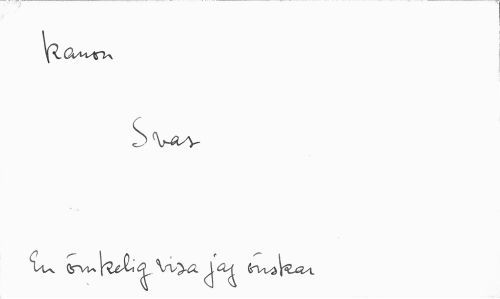 Kanon
Svar
En ömkelig visa jag önskar